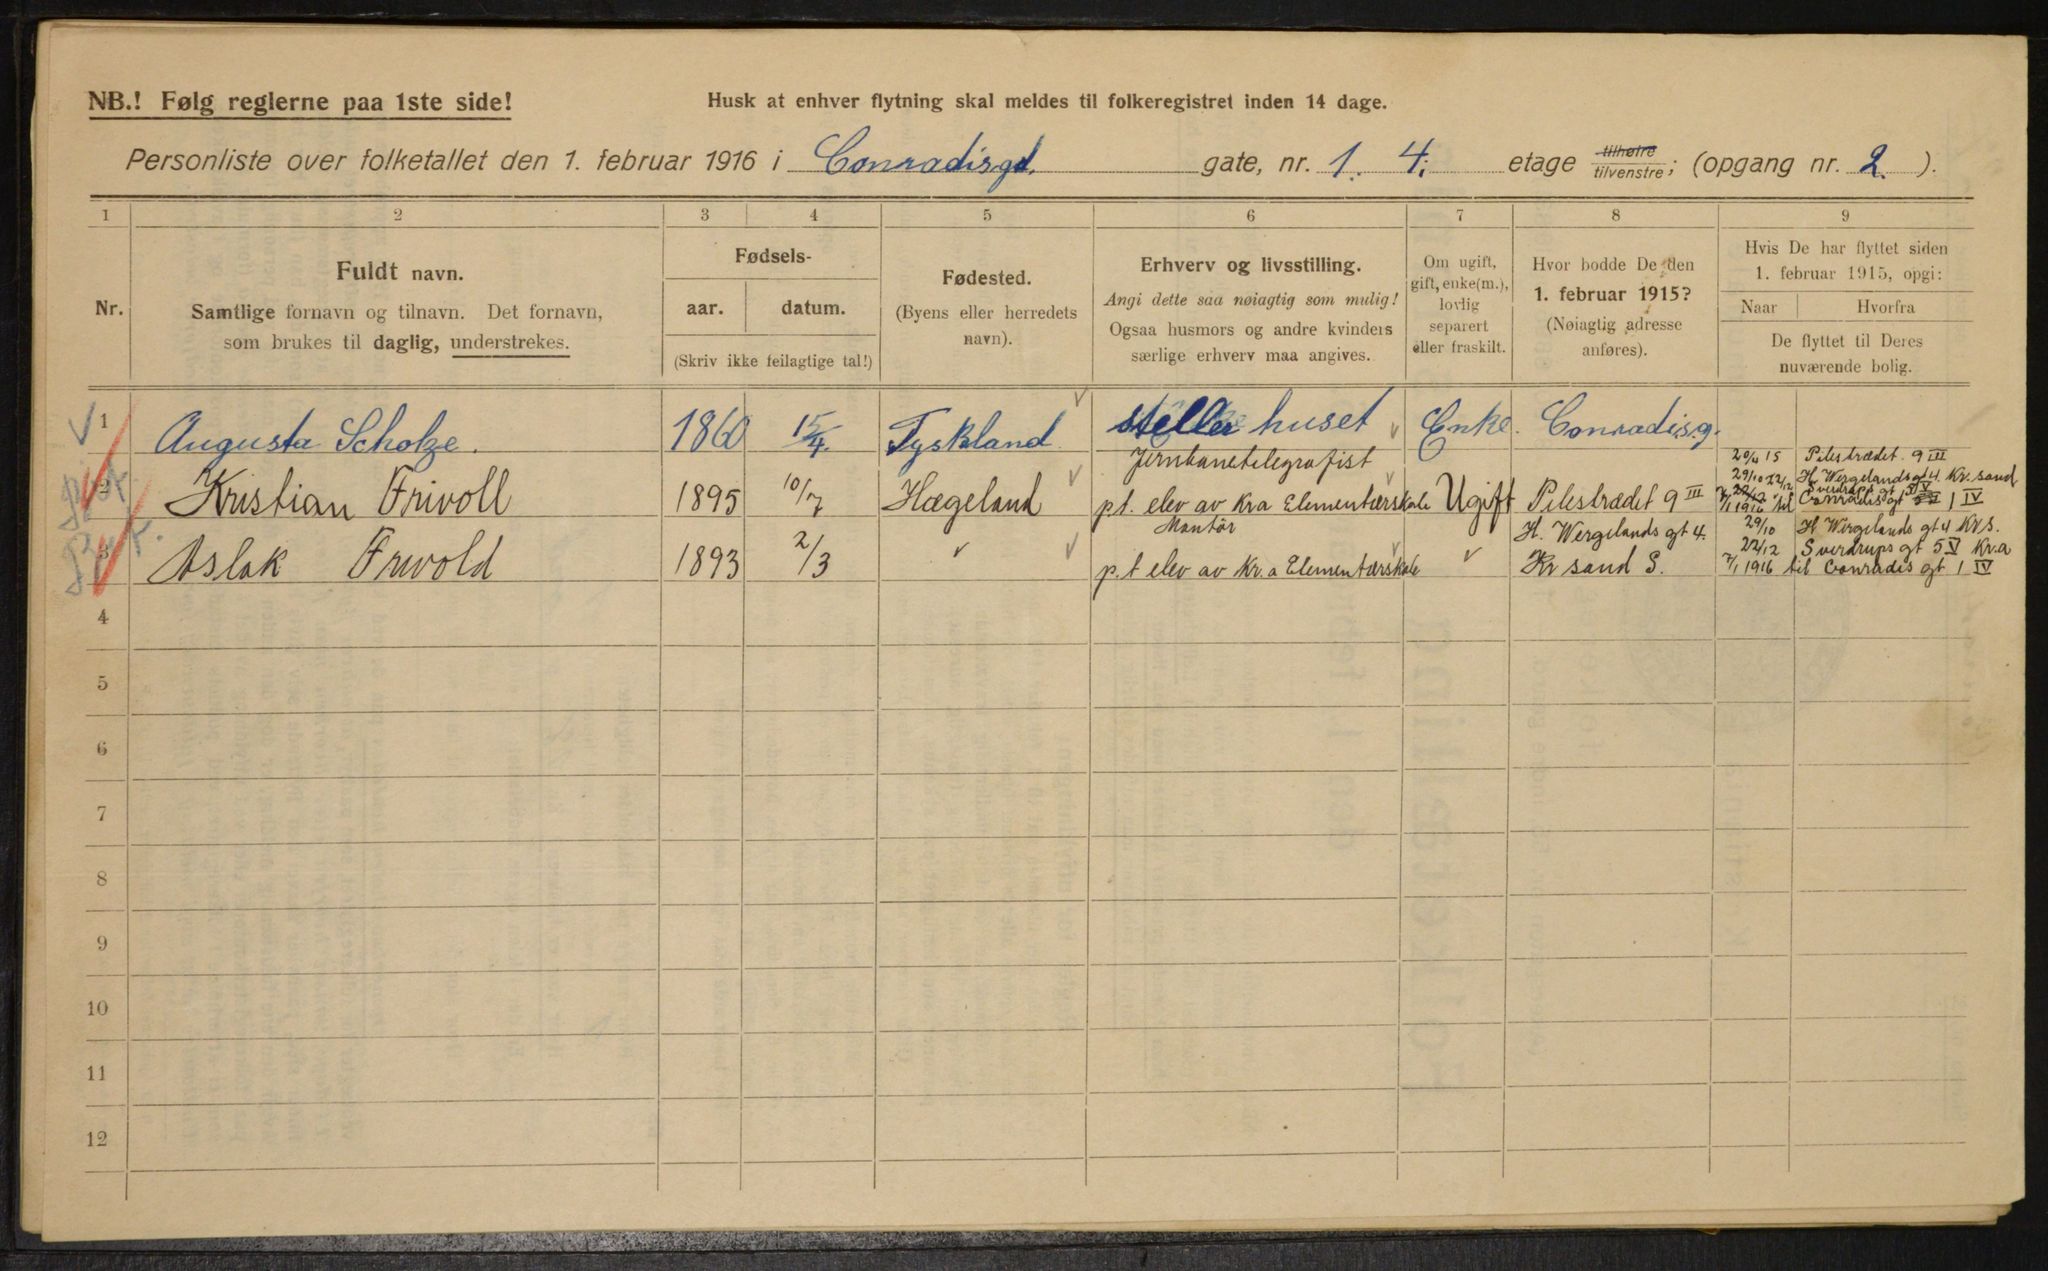 NB.! Følg reglerne paa 1ste side!
Husk at enhver flytning skal meldes til folkeregistret inden 14 dage.
Personliste over folketallet den 1. februar 1916 i Conradisgd. gate, nr. 1. 4. etage tilhøire tilvenstre; (opgang nr. 2. ).
1 2 3 4 5 6 7 8 9
Nr.
Fuldt navn.
Samtlige fornavn og tilnavn. Det fornavn,
som brukes til daglig, understrekes.
Fødsels-
aar. datum.
(Skriv ikke feilagtige tal!)
Fødested.
(Byens eller herredets
navn).
Erhverv og livsstilling.
Angi dette saa nøiagtig som mulig!
Ogsaa husmors og andre kvinders
særlige erhverv maa angives.
Om ugift,
gift, enke(m.),
lovlig
separert
eller fraskilt.
Hvor bodde De den
1. februar 1915?
(Nøiagtig adresse
anføres).
Hvis De har flyttet siden
1. februar 1915, opgi:
Naar Hvorfra
De flyttet til Deres
nuværende bolig.
1 Augusta Scholze. 1860 15/4. Tyskland steller huset Enke. Conradis.g.
Jernbanetelegrafist
20/4 15 Pilestrædet 9 III
29/10 22/12 H. Wergelandsgt 4. Kr. sand
2 Kristian Frivoll 1895 10/7 Hægeland pt. elev av Kra Elementærskole Ugift Pilestrædet 9 III
7/1 1916 til Conradis gt 1 IV
Montör H. Wergelands gt 4. 29/10 H Wergelands gt 4 Kr S.
22/12 Sverdrups gt 5 V Kr.a
3 Aslak Frivold 1893 2/3 " p.t elev av Kr.a Elementærskole " Kr sand S. 7/1 1916 til Conradis gt 1 IV
4
5
6
7
8
9
10
11
12